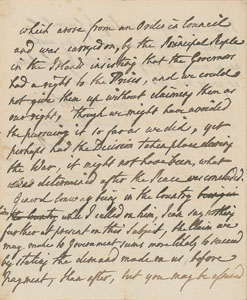 which arose from an Order in Council
and was carryed on, by the Principal People
in the Island insisting that the Governor
had a right to the Prizes, and we could
not give them up without claiming them as
our right, though we might have avoided
the pursuing it so far as we did, yet
perhaps had the Decision taken place during
the War, it might not have been, what
was determin'd after the Peace was concluded
Conway being in the Country
while I called on him, I can say nothing
further at present on this Subject, the Claim we
may make to Government, may more likely to succeed
by stating the demand made on us, before
payment, than after, but you may be assured